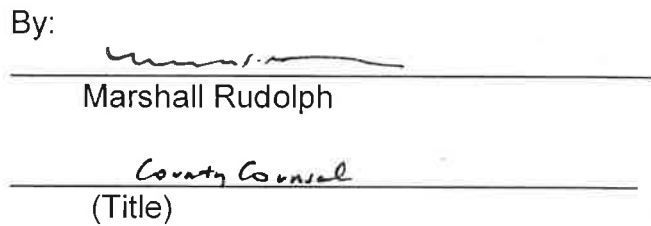 By:
Marshall Rudolph
County Counsel
(Title)